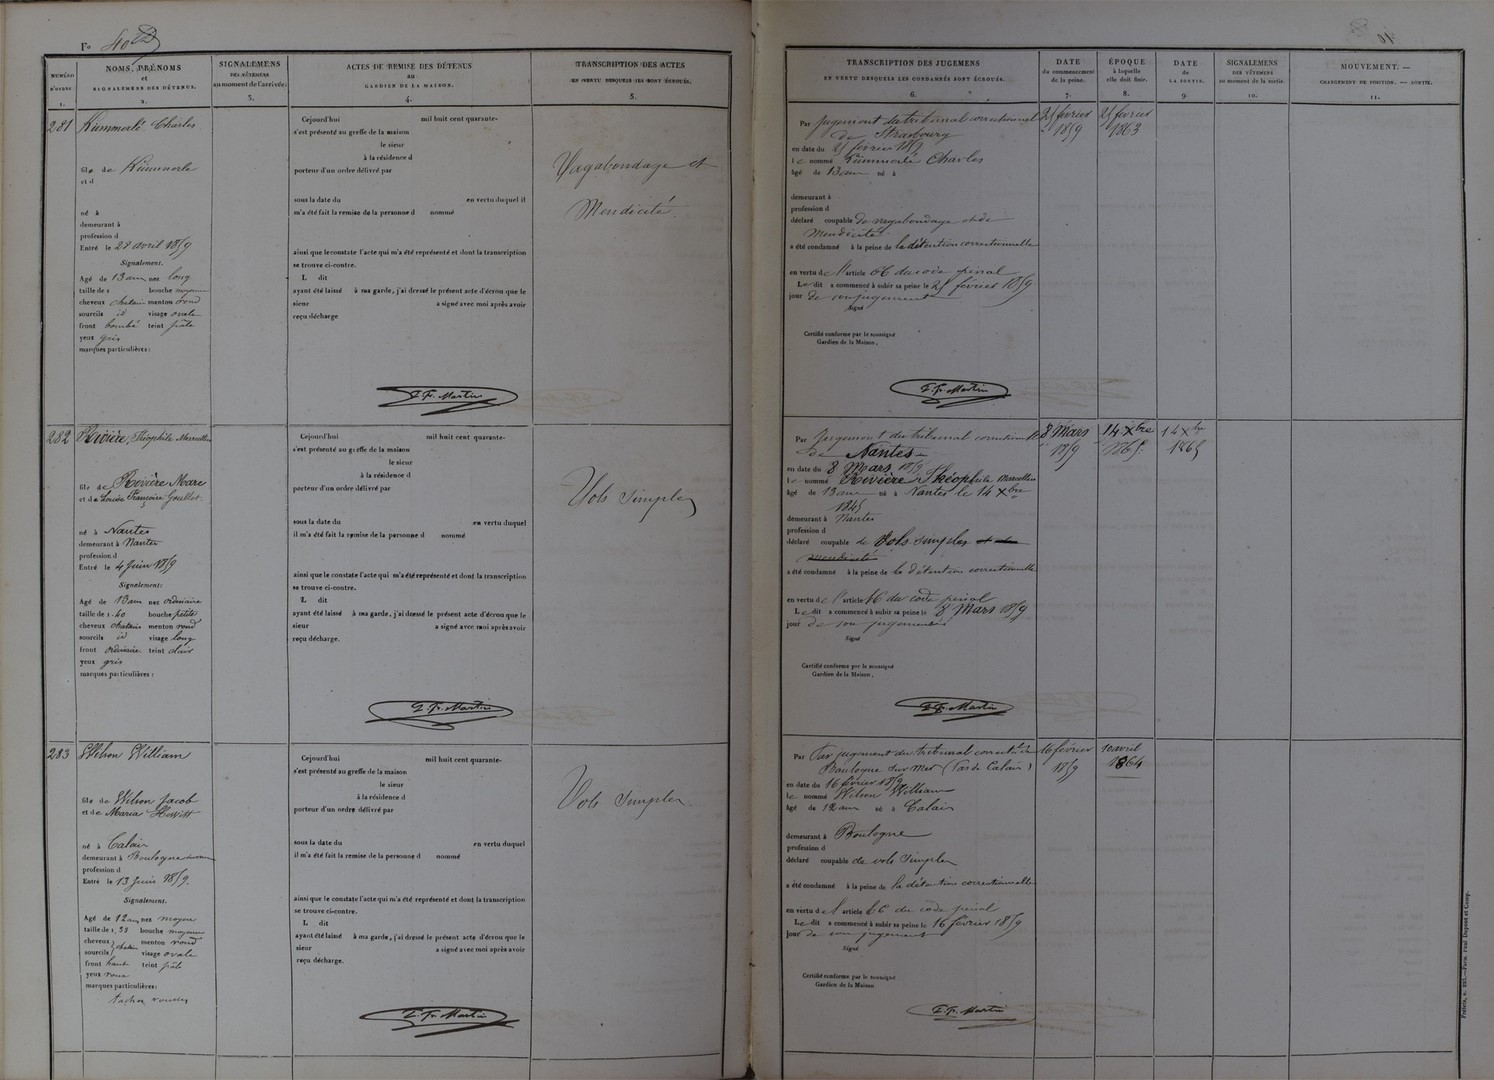 Fº 40
NUMÉRO D'ORDRE 1.
NOMS, PRÉNOMS et SIGNALEMENS DES DÉTENUS. 2.
SIGNALEMENS DES VÊTEMENS au moment de l'arrivée. 3.
ACTES DE REMISE DES DÉTENUS au GARDIEN DE LA MAISON. 4.
TRANSCRIPTION DES ACTES EN VERTU DESQUELS ILS SONT ÉCROUÉS. 5.
281 Kümmerlé Charles
fils de Kümmerlé
et d
né à
demeurant à
profession d
Entré le 28 avril 1859
Signalement.
Agé de 13 ans nez long
taille de 1 bouche moyenne
cheveux chatain menton rond
sourcils id visage ovale
front bombé teint pâle
yeux gris
marques particulières :
Cejourd'hui mil huit cent quarante-
s'est présenté au greffe de la maison
le sieur
à la résidence d
porteur d'un ordre délivré par
sous la date du en vertu duquel il
m'a été fait la remise de la personne d nommé
ainsi que le constate l'acte qui m'a été représenté et dont la transcription
se trouve ci-contre.
L dit
ayant été laissé à ma garde, j'ai dressé le présent acte d'écrou que le
sieur a signé avec moi après avoir
reçu décharge
F. Martin
Vagabondage et
Mendicité.
282 Rivière, Théophile Marcellin
fils de Rivière Marc
et de Louise Françoise Goullet
né à Nantes
demeurant à Nantes
profession d
Entré le 4 Juin 1859
Signalement:
Agé de 13 ans nez ordinaire
taille de 1.40 bouche petite
cheveux chatain menton rond
sourcils id visage long
front ordinaire teint clair
yeux gris
marques particulières :
Cejourd'hui mil huit cent quarante-
s'est présenté au greffe de la maison
le sieur
à la résidence d
porteur d'un ordre délivré par
sous la date du en vertu duquel
il m'a été fait la remise de la personne d nommé
ainsi que le constate l'acte qui m'a été représenté et dont la transcription
se trouve ci-contre.
L dit
ayant été laissé à ma garde, j'ai dressé le présent acte d'écrou que le
sieur a signé avec moi après avoir
reçu décharge.
F. Martin
Vols Simples
283 Wilson William
fils de Wilson Jacob
et de Maria Hewitt
né à Calais
demeurant à Boulogne
profession d
Entré le 13 Juin 1859.
Signalement.
Agé de 12 ans nez moyen
taille de 1,33 bouche moyenne
cheveux chatain menton rond
sourcils visage ovale
front haut teint pâle
yeux roux
marques particulières:
taches rousses
Cejourd'hui mil huit cent quarante-
s'est présenté au greffe de la maison
le sieur
à la résidence d
porteur d'un ordre délivré par
sous la date du en vertu duquel
il m'a été fait la remise de la personne d nommé
ainsi que le constate l'acte qui m'a été représenté et dont la transcription
se trouve ci-contre.
L dit
ayant été laissé à ma garde, j'ai dressé le présent acte d'écrou que le
sieur a signé avec moi après avoir
reçu décharge.
F. Martin
Vols Simples
TRANSCRIPTION DES JUGEMENS EN VERTU DESQUELS LES CONDAMNÉS SONT ÉCROUÉS. 6.
DATE du commencement de la peine. 7.
ÉPOQUE à laquelle elle doit finir. 8.
DATE de LA SORTIE. 9.
SIGNALEMENS DES VÊTEMENS au moment de la sortie. 10.
MOUVEMENT. — CHANGEMENT DE POSITION. — SORTIE. 11.
Par jugement du tribunal correctionnel
de Strasbourg
en date du 25 février 1859
le nommé Kümmerlé Charles
âgé de 13 ans né à
demeurant à
profession d
déclaré coupable de vagabondage et de
Mendicité
a été condamné à la peine de la détention correctionnelle
en vertu de l'article 66 du code pénal
Le dit a commencé à subir sa peine le 25 février 1859
jour de son jugement
Signé
Certifié conforme par le soussigné
Gardien de la Maison,
F. Martin
25 février 1859
25 février 1863
Par jugement du tribunal correctionnel
de Nantes
en date du 8 Mars 1859
le nommé Rivière Théophile Marcellin
âgé de 13 ans né à Nantes le 14 Xbre
1845
demeurant à Nantes
profession d
déclaré coupable de Vols simples et de
mendicité
a été condamné à la peine de la détention correctionnelle
en vertu de l'article 66 du code pénal
Le dit a commencé à subir sa peine le 8 Mars 1859
jour de son jugement
Signé
Certifié conforme par le soussigné
Gardien de la Maison,
F. Martin
8 Mars 1859
14 Xbre 1865
14 Xbre 1865
Par Par jugement du tribunal correctel de
Boulogne sur mer (Pas de Calais)
en date du 16 février 1859
le nommé Wilson William
âgé de 12 ans né à Calais
demeurant à Boulogne
profession d
déclaré coupable de vols simples
a été condamné à la peine de la détention correctionnelle
en vertu de l'article 66 du code pénal
Le dit a commencé à subir sa peine le 16 février 1859
jour de son jugement
Signé
Certifié conforme par le soussigné
Gardien de la Maison
F. Martin
16 février 1859
10 avril 1864